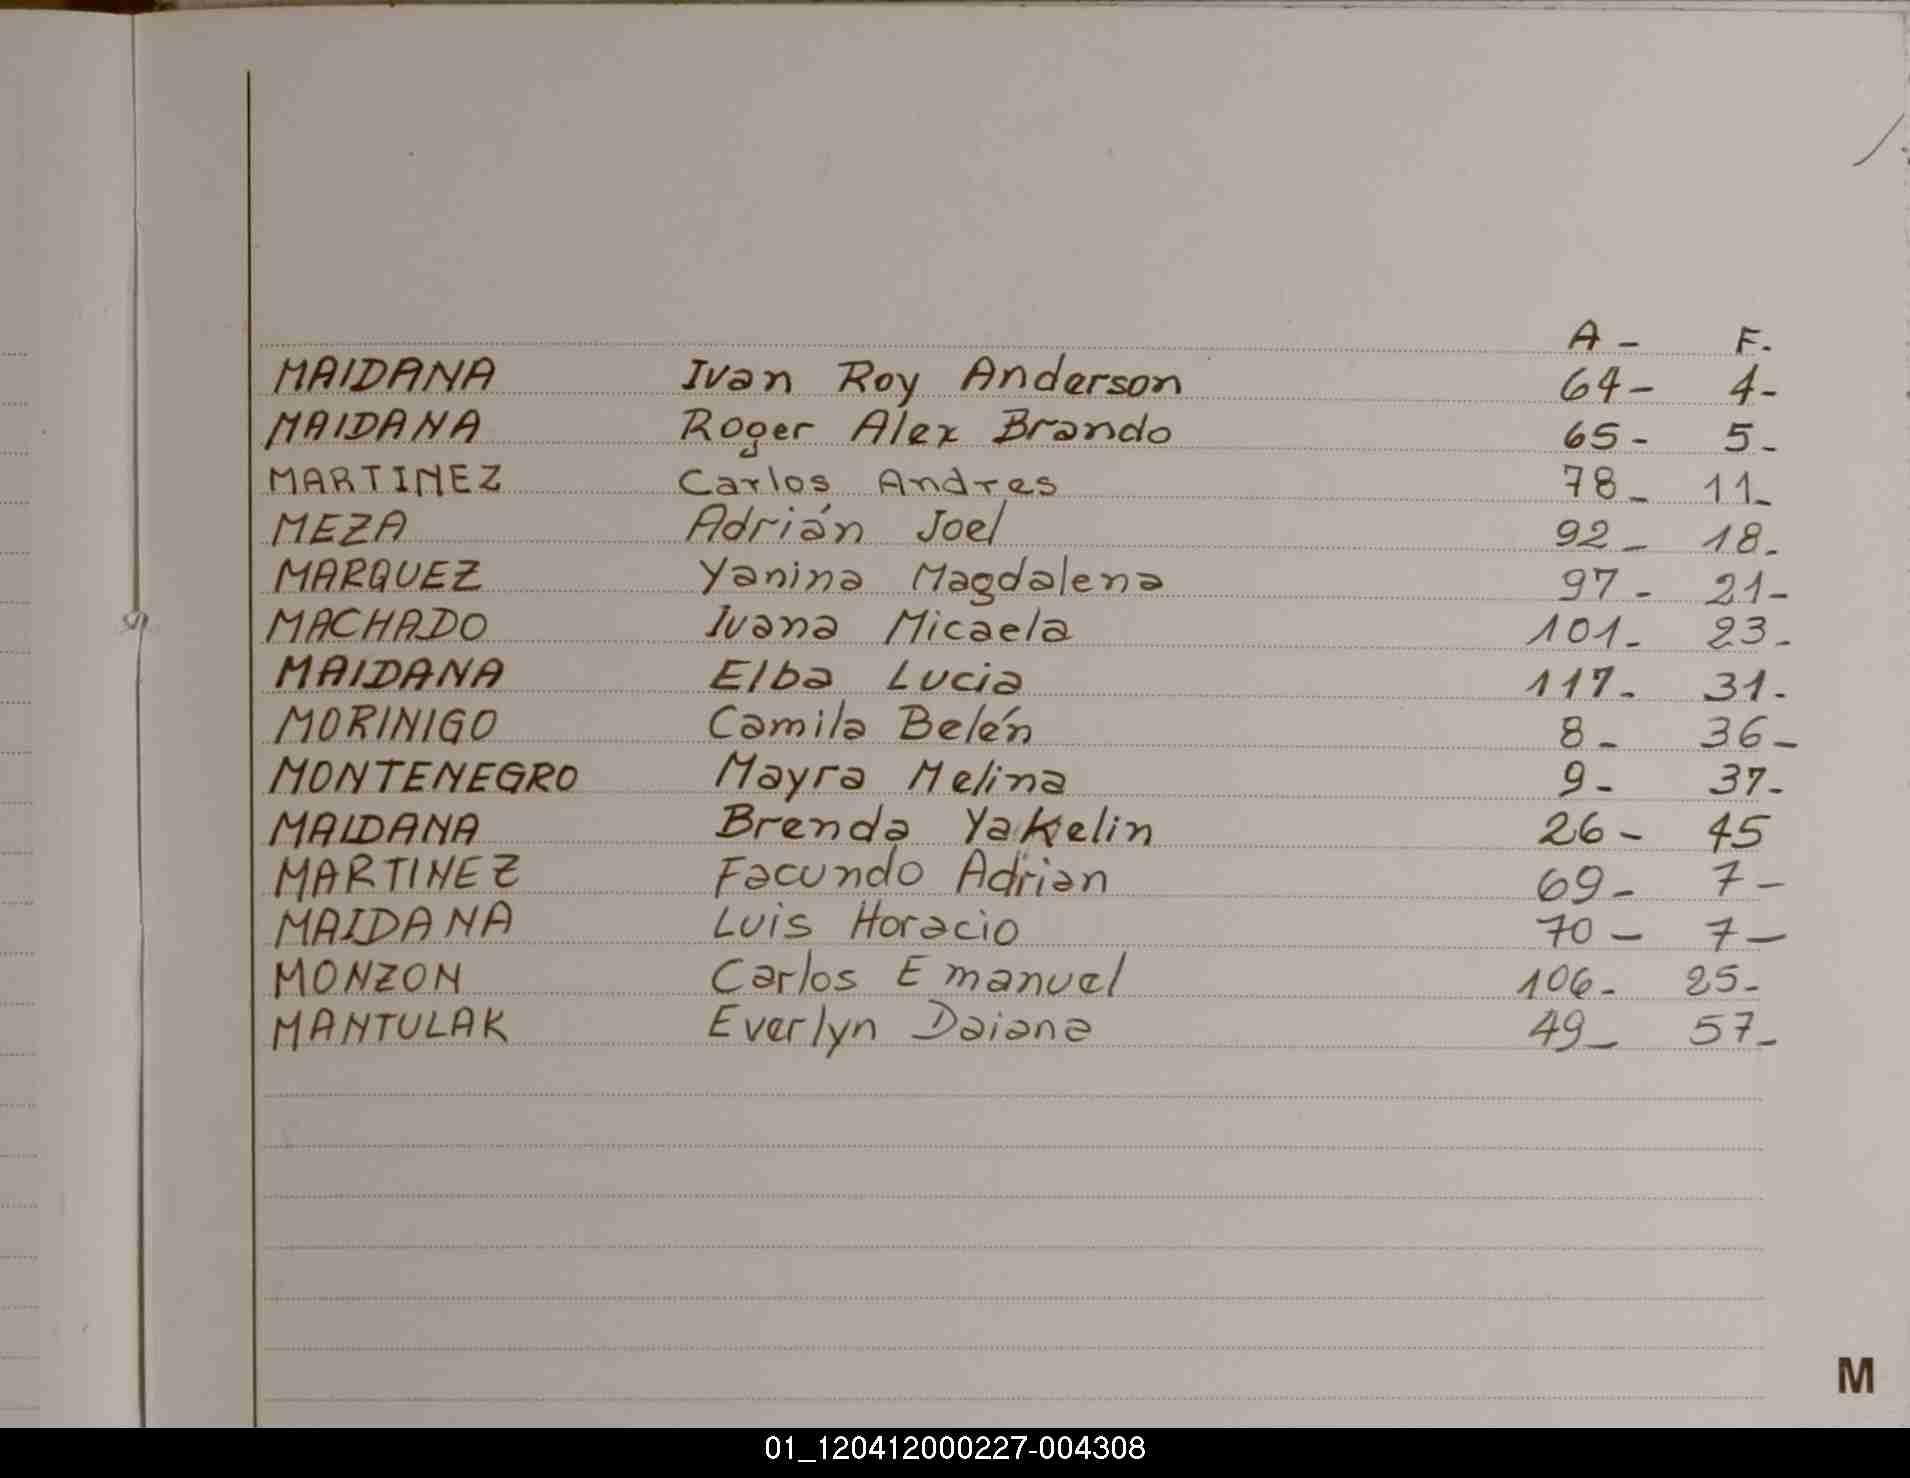 A - F.
MAIDANA Ivan Roy Anderson 64- 4-
MAIDANA Roger Alex Brando 65- 5-
MARTINEZ Carlos Andres 78- 11-
MEZA Adrián Joel 92- 18-
MARQUEZ Yanina Magdalena 97- 21-
MACHADO Ivana Micaela 101- 23-
MAIDANA Elba Lucia 117- 31-
MORINIGO Camila Belén 8- 36-
MONTENEGRO Mayra Melina 9- 37-
MAIDANA Brenda Yakelin 26- 45
MARTINEZ Facundo Adrian 69- 7-
MAIDANA Luis Horacio 70- 7-
MONZON Carlos Emanuel 106- 25-
MANTULAK Everlyn Daiana 49- 57-
M
01_120412000227-004308